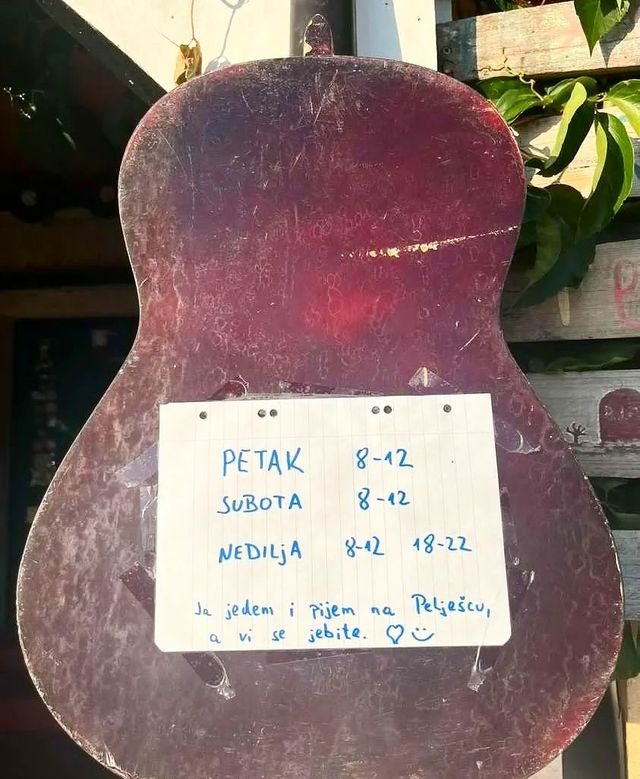 PETAK 8-12
SUBOTA 8-12
NEDILjA 8-12 18-22
Ja jedem i pijem na Pelješcu,
a vi se jebite. ♡ :)